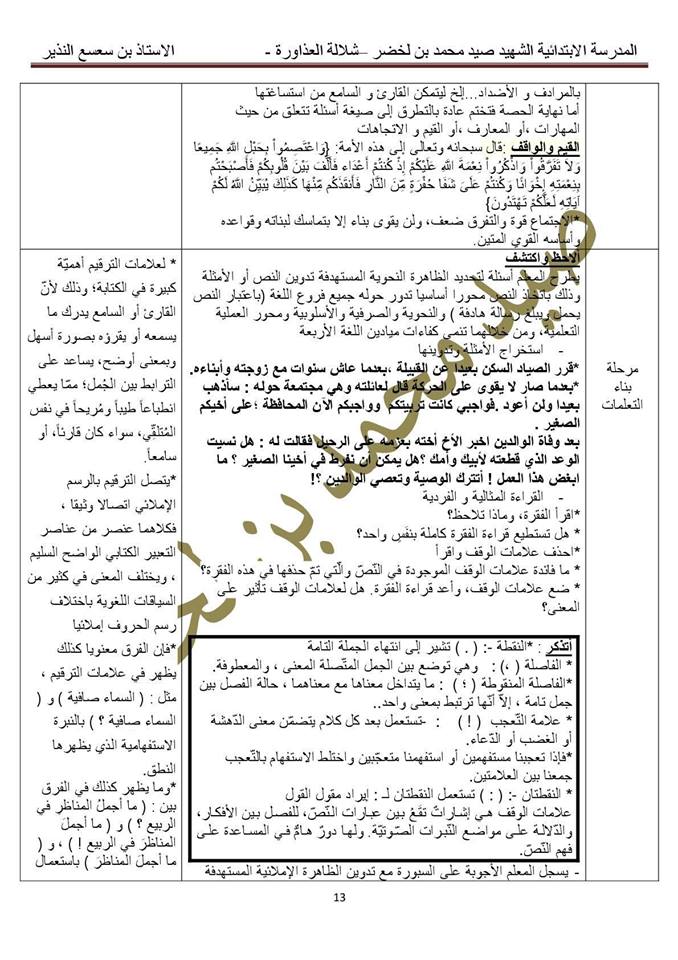 المدرسة الابتدائية الشهيد صيد محمد بن لخضر –شلالة العذاورة - الاستاذ بن سعسع النذير
بالمرادف و الأضداد...إلخ ليتمكن القارئ و السامع من استساغتها
أما نهاية الحصة فتختم عادة بالتطرق إلى صيغة أسئلة تتعلق من حيث
المهارات ،أو المعارف ،أو القيم و الاتجاهات
القيم والواقف :قال سبحانه وتعالى إلى هذه الأمة: {وَاعْتَصِمُواْ بِحَبْلِ اللهِ جَمِيعًا
وَلاَ تَفَرَّقُواْ وَاذْكُرُواْ نِعْمَةَ اللهِ عَلَيْكُمْ إِذْ كُنتُمْ أَعْدَاء فَأَلَّفَ بَيْنَ قُلُوبِكُمْ فَأَصْبَحْتُم
بِنِعْمَتِهِ إِخْوَانًا وَكُنتُمْ عَلَىَ شَفَا حُفْرَةٍ مِّنَ النَّارِ فَأَنقَذَكُم مِّنْهَا كَذَلِكَ يُبَيِّنُ اللهُ لَكُمْ
آيَاتِهِ لَعَلَّكُمْ تَهْتَدُونَ}
*الاجتماع قوة والتفرق ضعف، ولن يقوى بناء إلا بتماسك لبناته وقواعده
وأساسه القوي المتين.
مرحلة
بناء
التعلمات
ألاحظ واكتشف
يطرح المعلم أسئلة لتحديد الظاهرة النحوية المستهدفة تدوين النص أو الأمثلة
وذلك باتخاذ النص محورا أساسيا تدور حوله جميع فروع اللغة (باعتبار النص
يحمل ويبلغ رسالة هادفة ) والنحوية والصرفية والأسلوبية ومحور العملية
التعلمية، ومن خلالهما تنمى كفاءات ميادين اللغة الأربعة
- استخراج الأمثلة وتدوينها
*قرر الصياد السكن بعيدا عن القبيلة ،بعدما عاش سنوات مع زوجته وأبناءه.
*بعدما صار لا يقوى على الحركة قال لعائلته وهي مجتمعة حوله : سأذهب
بعيدا ولن أعود .فواجبي كانت تربيتكم وواجبكم الآن المحافظة ؛على أخيكم
الصغير .
بعد وفاة الوالدين اخبر الأخ أخته بعزمه على الرحيل فقالت له : هل نسيت
الوعد الذي قطعته لأبيك وأمك ؟هل يمكن أن نفرط في أخينا الصغير ؟ ما
ابغض هذا العمل ! أتترك الوصية وتعصي الوالدين ؟!
- القراءة المثالية و الفردية
*اقرأ الفقرة، وماذا تلاحظ؟
* هل تستطيع قراءة الفقرة كاملة بنفَسٍ واحد؟
*احذف علامات الوقف واقرأ
* ما فائدة علامات الوقف الموجودة في النّصّ والّتي تمّ حذفها في هذه الفقرة؟
* ضع علامات الوقف، وأعد قراءة الفقرة. هل لعلامات الوقف تأثير على
المعنى؟
أتذكر : *النقطة :- ( . ) تشير إلى انتهاء الجملة التامة
* الفاصلة ( ،) : وهي توضع بين الجمل المتّصلة المعنى ، والمعطوفة.
*الفاصلة المنقوطة ( ؛ ) : ما يتداخل معناها مع معناهما ، حالة الفصل بين
جمل تامة ، إلاّ أنّها ترتبط بمعنى واحد..
* علامة التّعجب ( ! ) : -تستعمل بعد كل كلام يتضمّن معنى الدّهشة
أو الغضب أو الدّعاء.
*فإذا تعجبنا مستفهمين أو استفهمنا متعجّبين واختلط الاستفهام بالتّعجب
جمعنا بين العلامتين.
* النقطتان :- ( : ) تستعمل النقطتان لـ : إيراد مقول القول
علامات الوقف هـي إشاراتٌ تقَعُ بيـن عبـارات النّصّ، للفصـل بيـن الأفكـار،
والدّلالـة علـى مواضـع النّبرات الصّـوتيّـة. ولهـا دورٌ هـامٌّ فـي المسـاعدة علـى
فهم النّصّ.
- يسجل المعلم الأجوبة على السبورة مع تدوين الظاهرة الإملائية المستهدفة
* لعلامات الترقيم أهميّة
كبيرة في الكتابة؛ وذلك لأنّ
القارئ أو السامع يدرك ما
يسمعه أو يقرؤه بصورة أسهل
وبمعنى أوضح، يساعد على
الترابط بين الجُمل؛ ممّا يعطي
انطباعاً طيباً ومُريحاً في نفس
المُتلقّي، سواء كان قارئاً، أو
سامعاً.
*يتصل الترقيم بالرسم
الإملائي اتصالا وثيقا ،
فكلاهما عنصر من عناصر
التعبير الكتابي الواضح السليم
، ويختلف المعنى في كثير من
السياقات اللغوية باختلاف
رسم الحروف إملائيا
*فإن الفرق معنويا كذلك
يظهر في علامات الترقيم ،
مثل : ( السماء صافية ) و (
السماء صافية ؟ ) بالنبرة
الاستفهامية الذي يظهرها
النطق.
*وما يظهر كذلك في الفرق
بين : ( ما أجملُ المناظرِ في
الربيع ؟ ) و ( ما أجملَ
المناظرَ في الربيع ! ) ، و (
ما أجملَ المناظرَ ) باستعمال
صيد محمد بن لخ
13